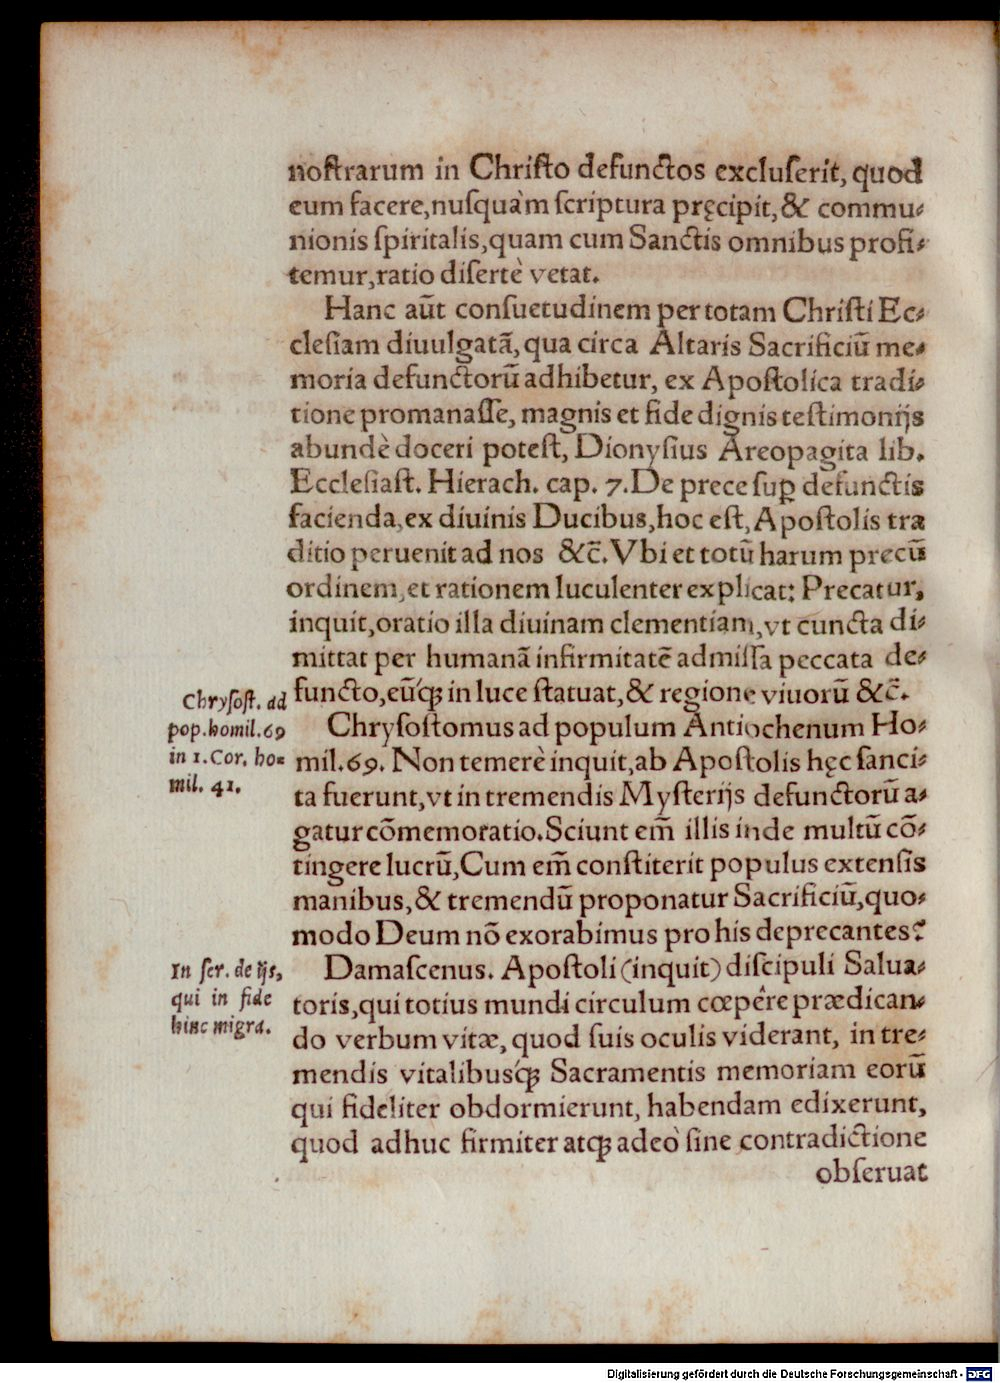 noſtrarum in Chriſto defunctos excluſerit, quod
eum facere, nuſquàm ſcriptura pręcipit, & commu⸗
nionis ſpiritalis, quam cum Sanctis omnibus profi⸗
temur, ratio diſertè vetat.
Hanc aūt conſuetudinem per totam Chriſti Ec⸗
cleſiam diuulgatã, qua circa Altaris Sacrificiū me⸗
moria defunctorū adhibetur, ex Apoſtolica tradi⸗
tione promanaſſe, magnis et fide dignis teſtimonijs
abundè doceri poteſt, Dionyſius Areopagita lib.
Eccleſiaſt. Hierach. cap. 7. De prece ſuꝑ defunctis
facienda, ex diuinis Ducibus, hoc eſt, Apoſtolis tra
ditio peruenit ad nos &c̄. Vbi et totū harum precū
ordinem, et rationem luculenter explicat: Precatur,
inquit, oratio illa diuinam clementiam, vt cuncta di⸗
mittat per humanã infirmitatẽ admiſſa peccata de⸗
functo, eūq́; in luce ſtatuat, & regione viuorū &c̄.
Chryſoſt. ad
pop. homil. 69
in 1. Cor. ho⸗
mil. 41.
Chryſoſtomus ad populum Antiochenum Ho⸗
mil. 69. Non temerè inquit, ab Apoſtolis hęc ſanci⸗
ta fuerunt, vt in tremendis Myſterijs defunctorū a⸗
gatur cõmemoratio. Sciunt em̄ illis inde multū cõ⸗
tingere lucrū, Cum em̄ conſtiterit populus extenſis
manibus, & tremendū proponatur Sacrificiū, quo⸗
modo Deum nõ exorabimus pro his deprecantes?
In ſer. de ijs,
qui in fide
hinc migra.
Damaſcenus. Apoſtoli (inquit) diſcipuli Salua⸗
toris, qui totius mundi circulum cœpêre prædican⸗
do verbum vitæ, quod ſuis oculis viderant, in tre⸗
mendis vitalibusq́; Sacramentis memoriam eorū
qui fideliter obdormierunt, habendam edixerunt,
quod adhuc firmiter atq; adeò ſine contradictione
obſeruat
Digitalisierung gefördert durch die Deutsche Forschungsgemeinschaft - DFG